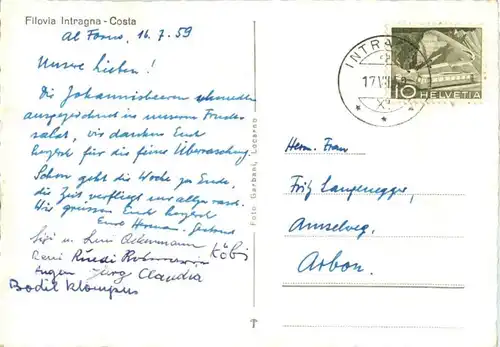 Filovia Intragna - Costa
Al Forno, 16.7.59
Unsere Lieben!
Die Johannisbeeren schmeckten
ausgezeichnet in unserem Frucht-
salat, wir danken Euch
herzl für die feine Überraschung.
Schon geht die Woche zu Ende,
die Zeit verfliegt uns allzu rasch.
Wir grüssen Euch herzl
Eure Herman.
Sigi u. Leni Ackermann
Köbi
Reni Ruedi
Eugen Jürg Claudia
Bodil Klompus
Foto Garbani, Locarno
INTRA
17 VII 59
10 HELVETIA
Herrn, Frau
Fritz Langenegger,
Amselweg,
Arbon.